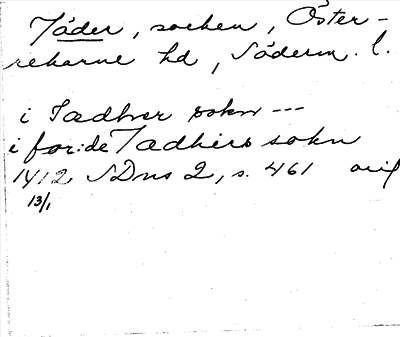 Jäder, socken, Öster-
rekarne hd, Söderm. l.
i Jædhrer sokn ---
i for:de Jædhers sokn
1412 SDns 2, s. 461 orig
13/1